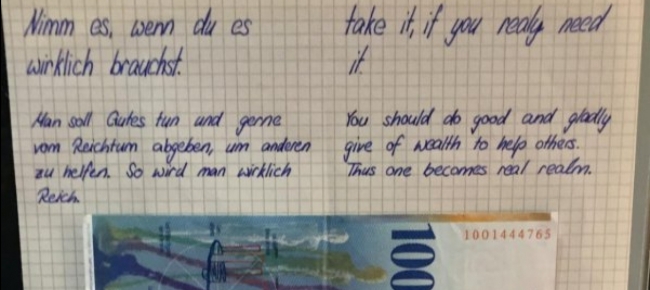 Nimm es, wenn du es
wirklich brauchst.
Man soll Gutes tun und gerne
vom Reichtum abgeben, um anderen
zu helfen. So wird man wirklich
Reich.
take it, if you realy need
it.
You should do good and gladly
give of wealth to help others.
Thus one becomes real realm.
100
1001444765